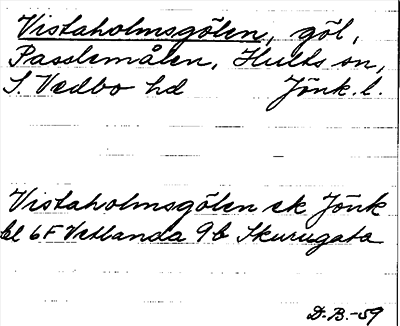 Vistaholmsgölen, göl,
Passlemålen, Hults sn,
S. Vedbo hd Jönk. l.
Vistaholmsgölen ek Jönk
bl 6F Vetlanda 9b Skurugata
D.B.-59